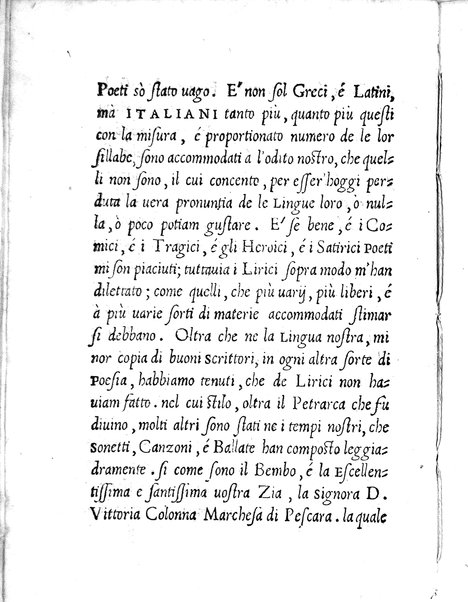 Poeti sò ſtato uago. E' non ſol Greci, é Latini,
mà ITALIANI tanto più, quanto più queſti
con la miſura, é proportionato numero de le lor
ſillabe, ſono accommodati a l'odito noſtro, che quel-
li non ſono, il cui concento, per eſſer'hoggi per-
duta la uera pronuntia de le Lingue loro, ò nul-
la, ò poco potiam guſtare. E' ſe bene, é i Co-
mici, é i Tragici, é gli Heroici, é i Satirici Poeti
mi ſon piaciuti; tuttauia i Lirici ſopra modo m'han
dilettato; come quelli, che più uarij, più liberi, é
à più uarie ſorti di materie accommodati ſtimar
ſi debbano. Oltra che ne la Lingua noſtra, mi
nor copia di buoni Scrittori, in ogni altra ſorte di
Poeſia, habbiamo tenuti, che de Lirici non ha-
uiam fatto. nel cui ſtilo, oltra il Petrarca che fù
diuino, molti altri ſono ſtati ne i tempi noſtri, che
Sonetti, Canzoni, é Ballate han compoſto leggia-
dramente. ſi come ſono il Bembo, é la Eſcellen-
tiſſima e ſantiſſima uoſtra Zia, la Signora D.
Vittoria Colonna Marcheſa di Peſcara. la quale